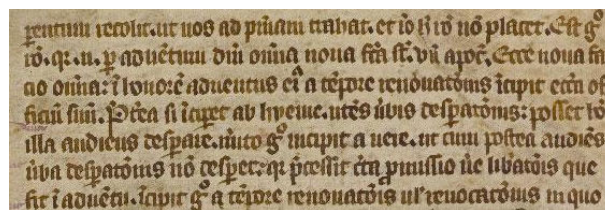 pentium recolit. ut uos ad pmam trahat. et io h ro no placet. Est gͦ
ro. qr. n. p aduentum dni omia noua fca st. vn apoc. Ecce noua fa
cio omia: i honore aduentus ei a tepore renouatois icipit ecca of
ficiu suu. Ptea si iciperet ab hyeme. utes ubis desperatois: posset ho
illa audiens desperare. mito gͦ incipit a uere. ut cum postea audies
uba desperatois no desperet. qr pcessit cta pmissio ue libatois que
fit i aduetu. Icipit gͦ a tepore renouatois ul reuocatois in quo